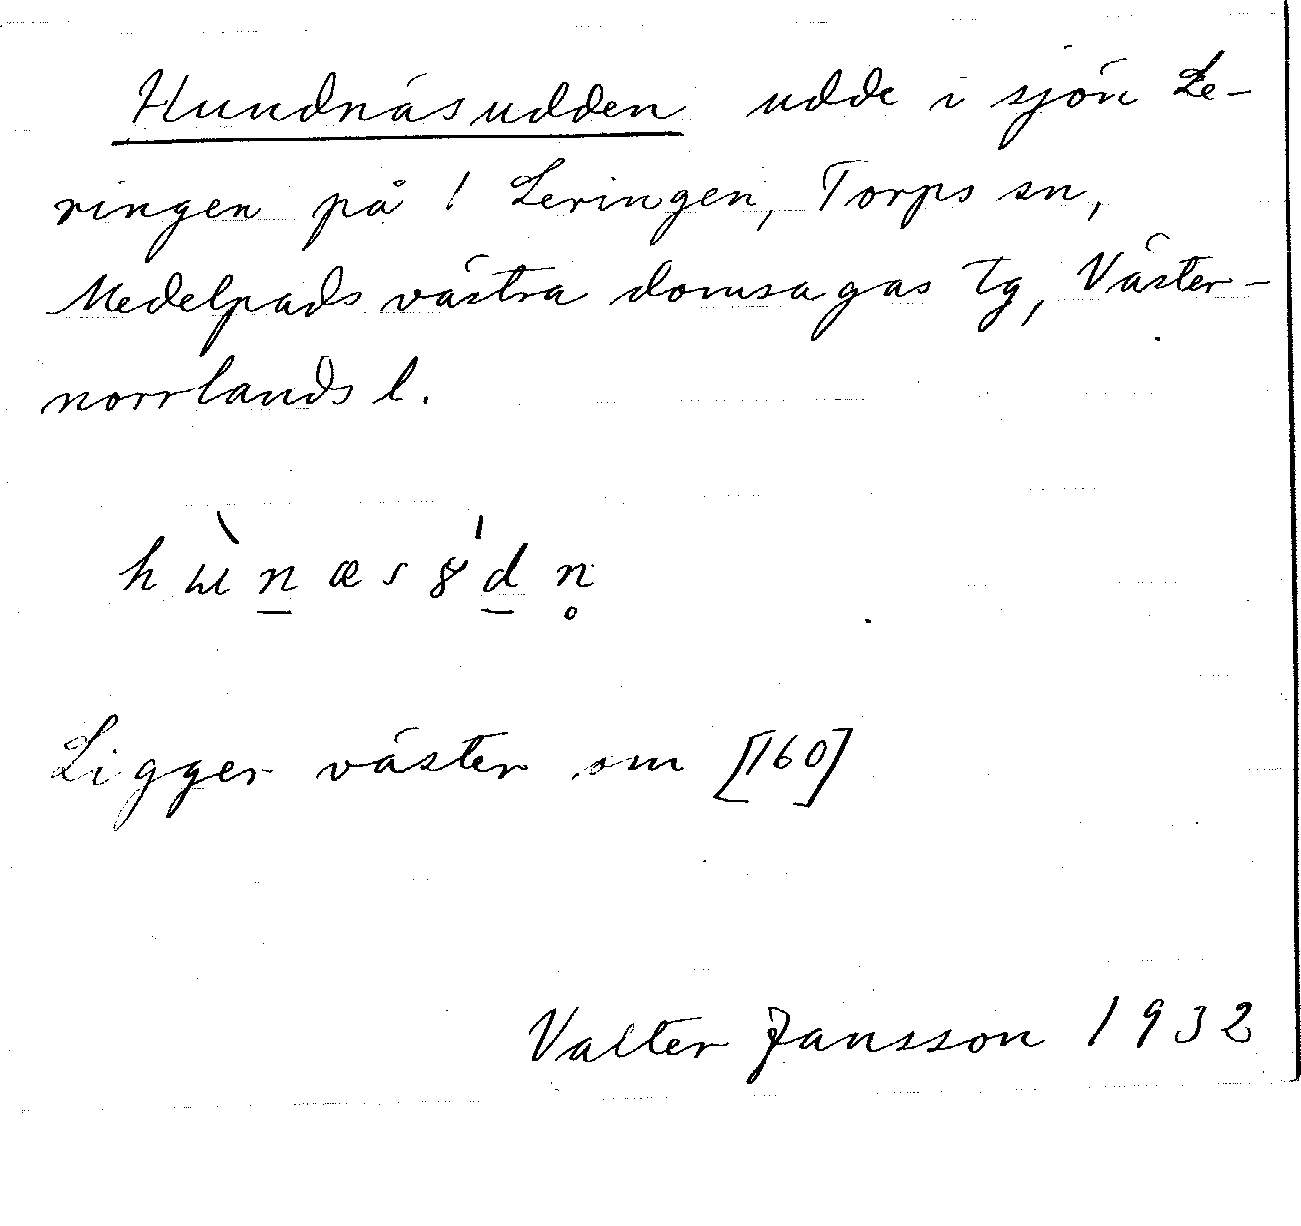 Hundnäsudden udde i sjön Le-
ringen på 1 Leringen, Torps sn,
Medelpads västra domsagas Tg, Väster-
norrlands l.
Ligger väster om [160]
Valter Jansson 1932